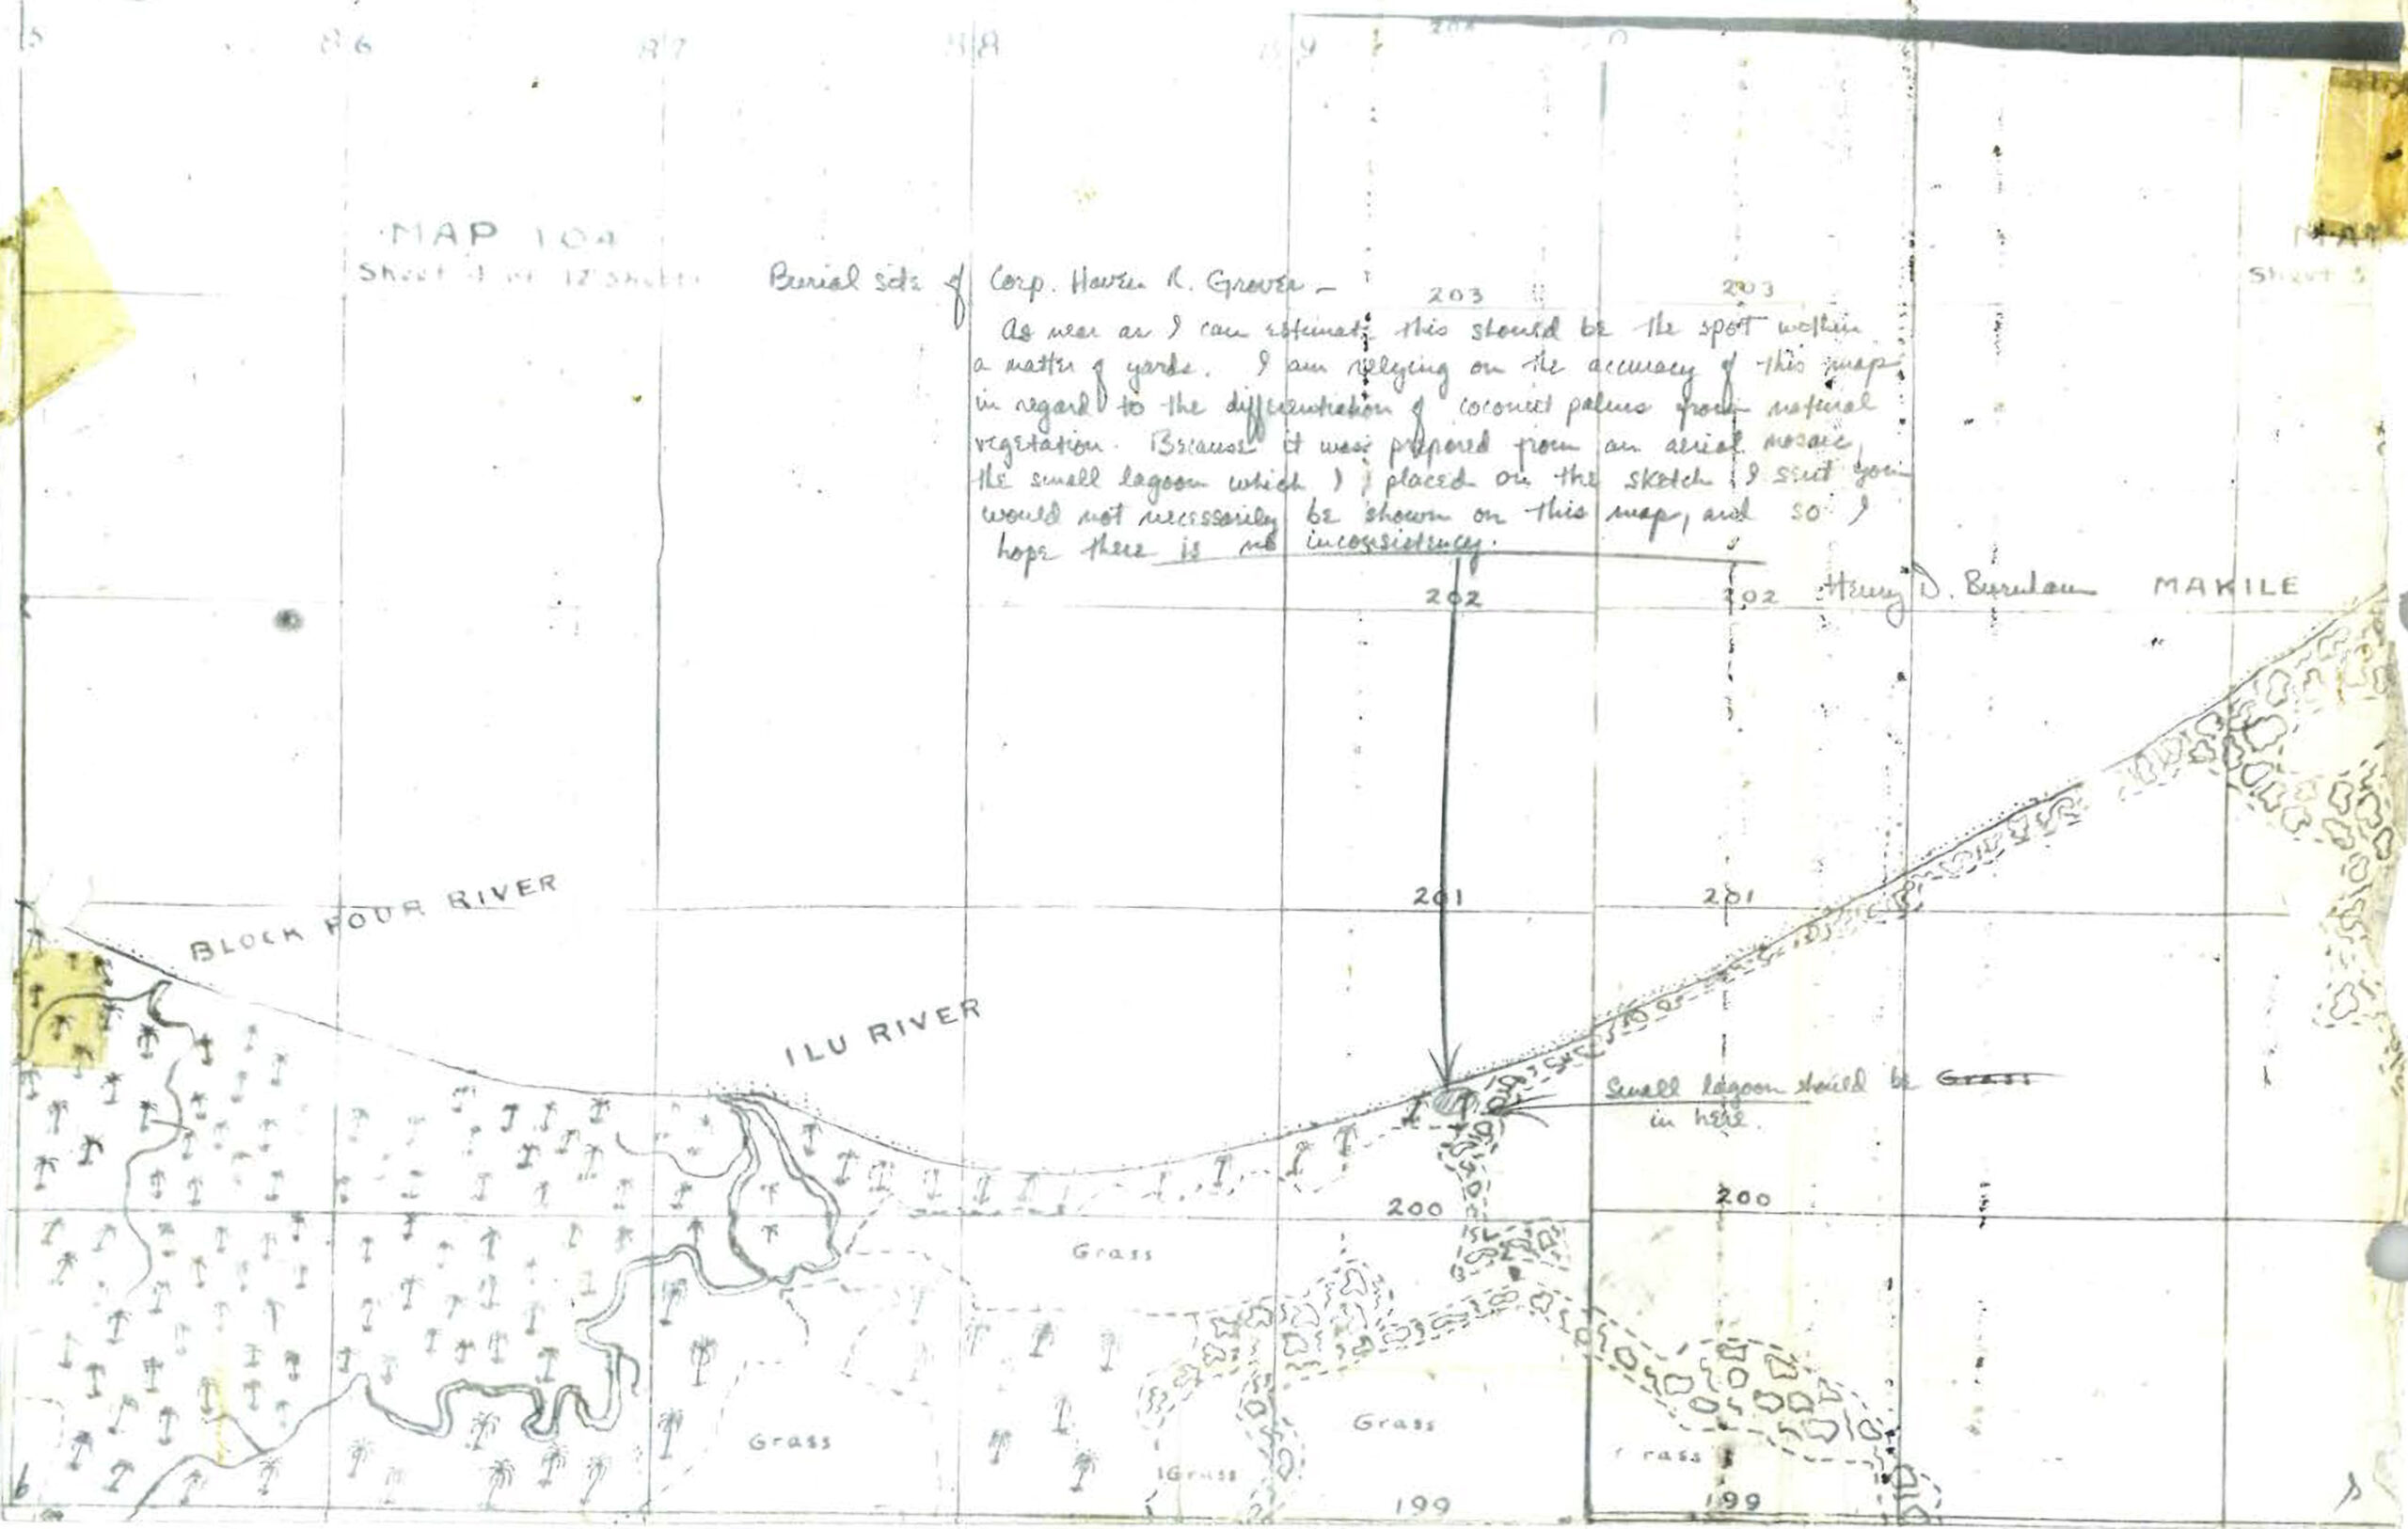 86 87 88 89
MAP 104
Sheet 4 of 12 Sheets
MAP
Sheet 5
Burial site of Corp. Haven R. Grover –
203 203
As near as I can estimate this should be the spot within
a matter of yards. I am relying on the accuracy of this map
in regard to the differentiation of coconut palms from natural
vegetation. Because it was prepared from an aerial mosaic,
the small lagoon which I placed on the sketch I sent you
would not necessarily be shown on this map, and so I
hope there is no inconsistency.
202 202 Henry D. Burnham MAKILE
201 201
BLOCK FOUR RIVER
ILU RIVER
Small lagoon should be Grass
in here.
200 200
Grass
Grass Grass Grass
Grass
199 199